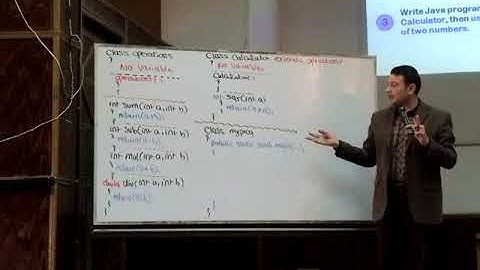 3 Write Java program
Calculator, then us
of two numbers.
class operations
{
No Variable
operations( ) {
}
int sum(int a, int b)
{ return(a+b);
}
int sub(int a, int b)
{ return(a-b);
}
int mul(int a, int b)
{ return(a*b);
}
double div(int a, int b)
{ return(a/b);
}
}
class Calculator extends operations
{ No Variable
Calculator
int sqr(int a)
{ return(a*a);
}
class myprog
{ public static void main
}
}